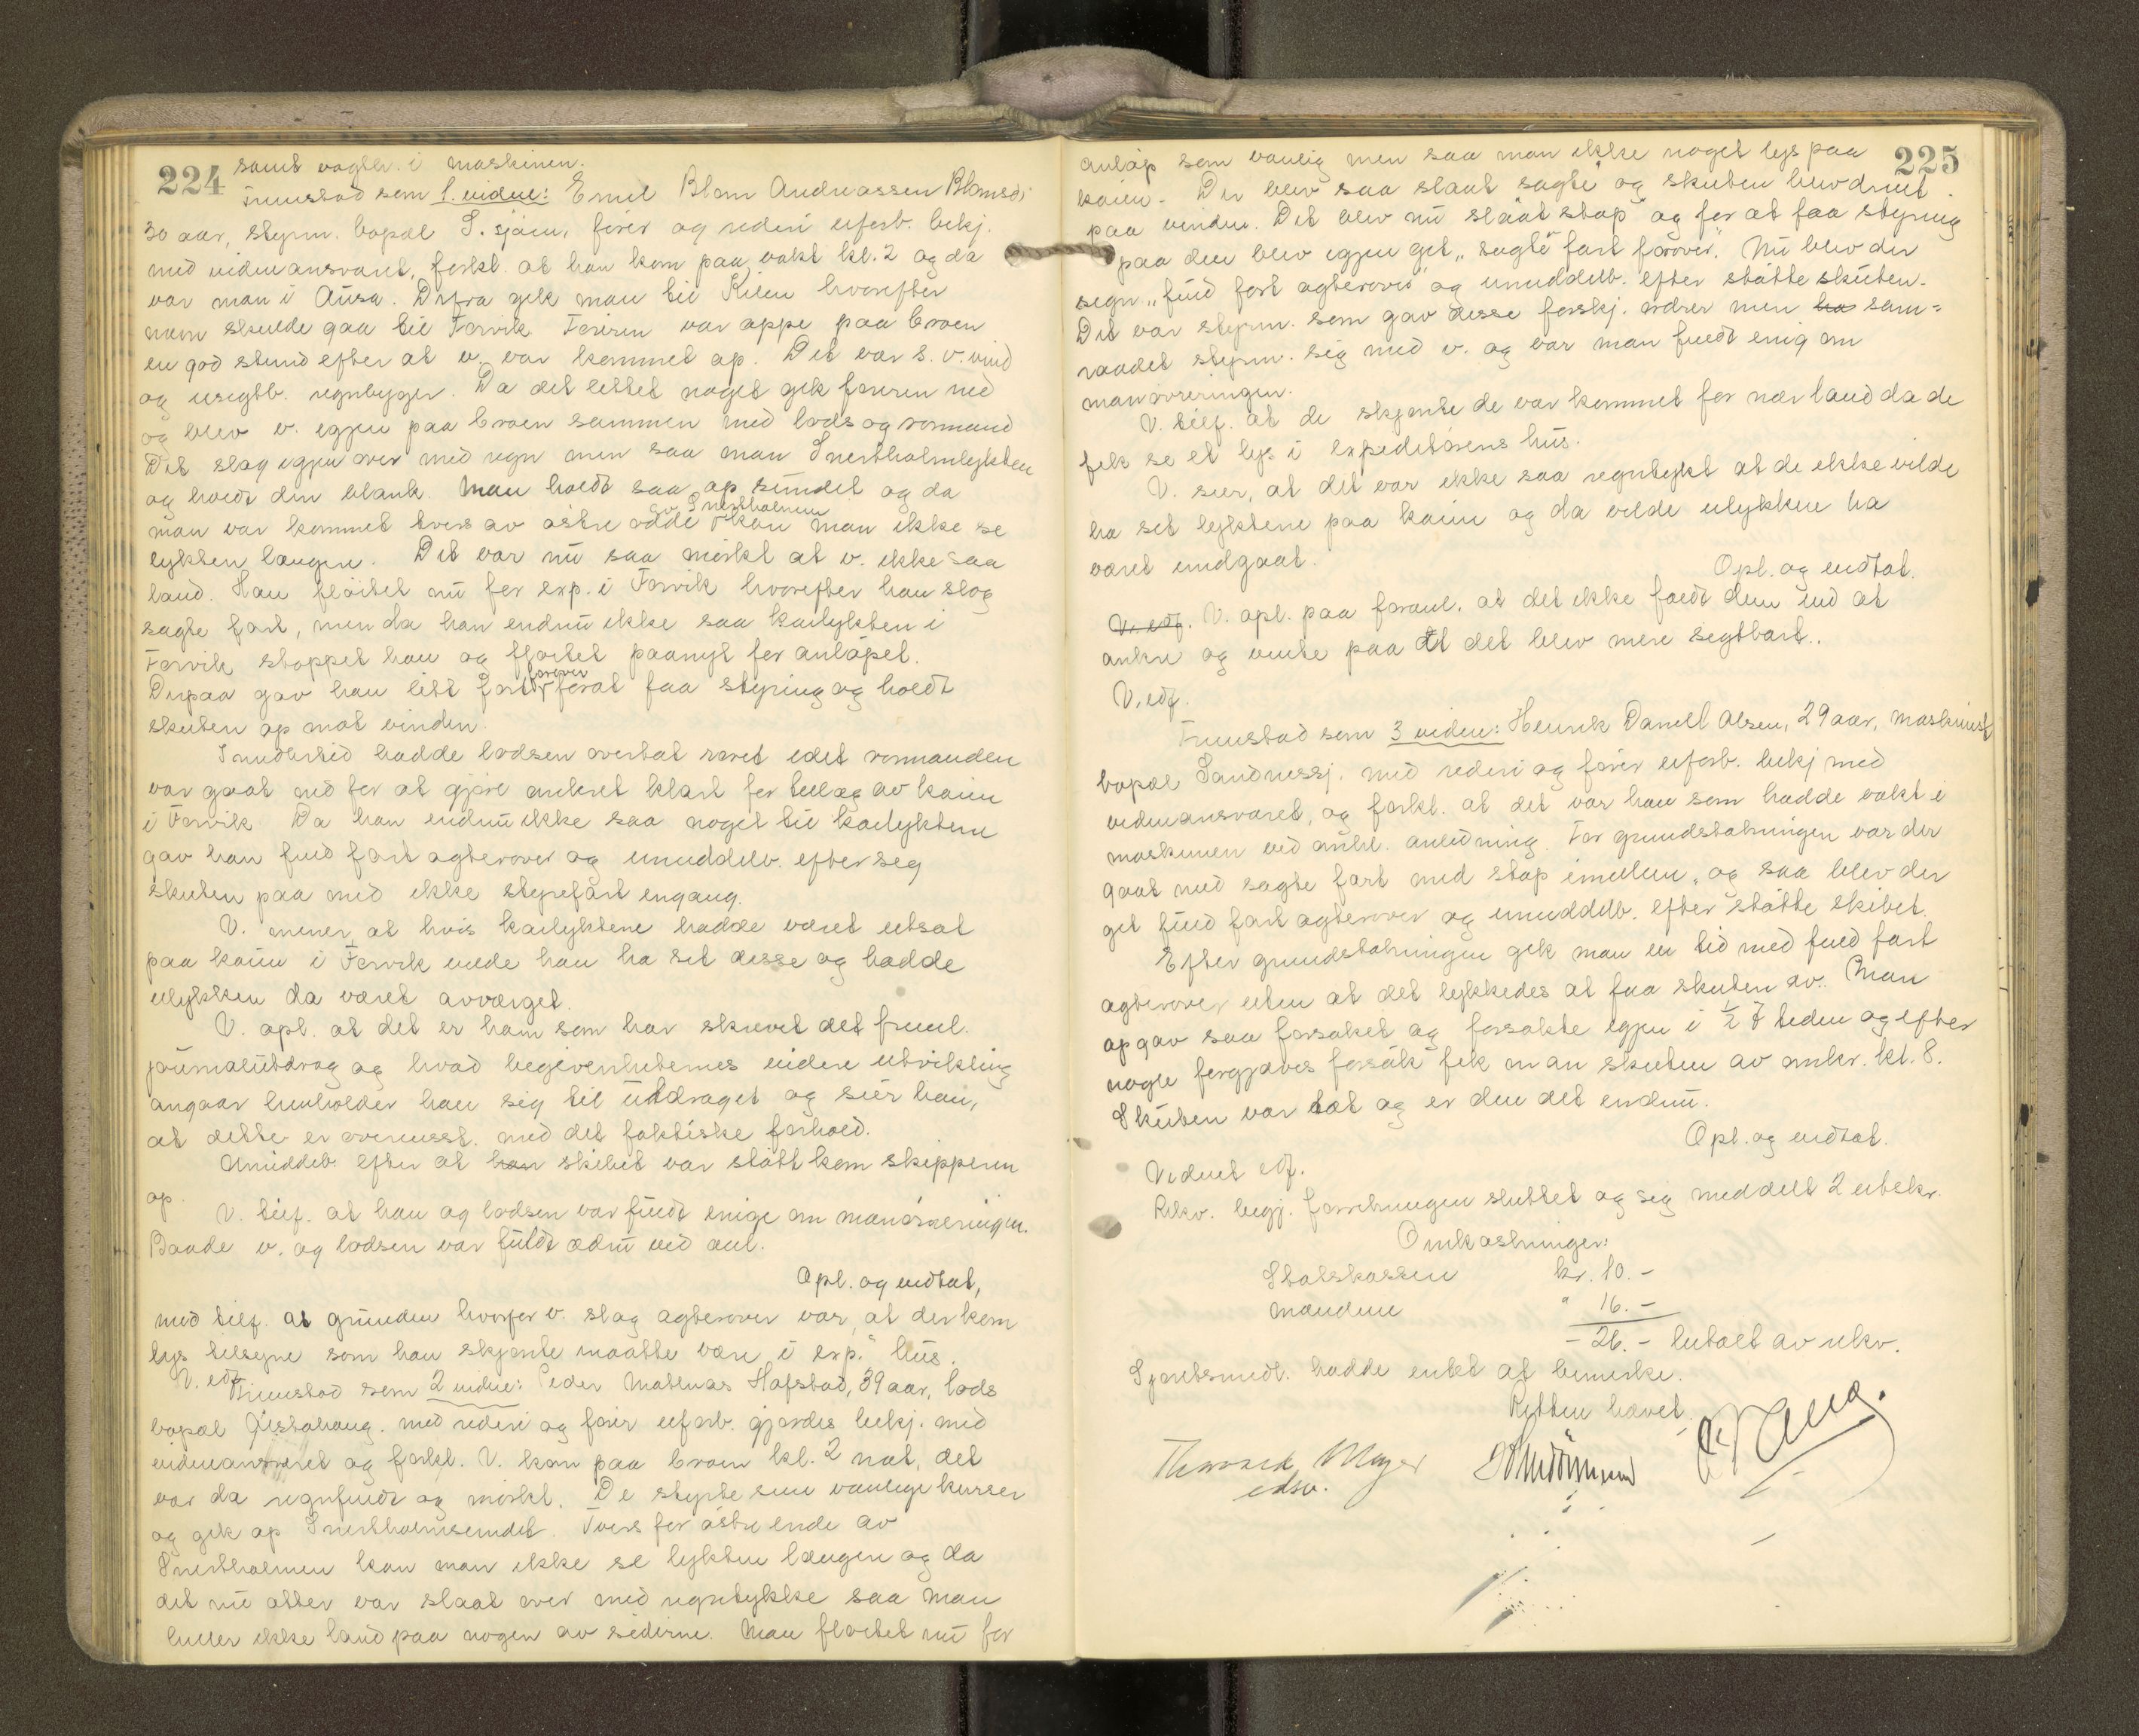 224
samt vagth. i maskinen.
Fremstod som 1. vidne: Emil Blom Andreassen
30 aar, styrm. bopæl S. sjøen, fører og rederi uforb. bekj.
med vidneansvaret, forkl. at han kom paa vakt kl. 2 og da
var man i Ausa. Derfra gik man til Kilen hvorefter
man skulde gaa til Forvik. Føreren var oppe paa broen
en god stund efter at v. var kommet op. Det var S. V. vind
og usigtb. regnbyger. Da det lettet noget gik føreren ned
og blev v. igjen paa broen sammen med lods og rormand
Det slog igjen over med regn men saa man Snertholmlykten
og holdt den blank. Man holdt saa op sundet og da
man var kommet tvers av østre odde av Snertholmen kan man ikke se
lykten længere. Det var nu saa mørkt at v. ikke saa
land. Han fløitet nu for exp. i Forvik hvorefter han slog
sagte fart, men da han endnu ikke saa kailykten i
Forvik stoppet han og fløitet paanyt for anløpet.
Derpaa gav han litt fart forover forat faa styring og holdt
skuten op mot vinden.
Imidlertid hadde lodsen overtat roret idet rormanden
var gaat ned for at gjøre ankret klart for tillæg av kaien
i Forvik. Da han endnu ikke saa noget til kailyktene
gav han fuld fart agterover og umiddelb. efter seg
skuten paa med ikke styrefart engang.
V. mener, at hvis kailyktene hadde været utsat
paa kaien i Forvik vilde han ha set disse og hadde
ulykken da været avværget.
V. opl. at det er ham som har skrevet det freml.
journalutdrag og hvad begivenheternes videre utvikling
angaar henholder han sig til utdraget og sier han,
at dette er overensst. med det faktiske forhold.
Umiddelb. efter at han skibet var støtt kom skipperen
op.
V. tilf. at han og lodsen var fuldt enige om manøvreringen.
Baade v. og lodsen var fuldt ædru ved anl.
Opl. og vedtat,
med tilf. at grunden hvorfor v. slog agterover var, at der kom
lys tilsyne som han skjønte maatte være i exp.'' hus.
V. edf.
Fremstod som 2 vidne: Peder Mathias Hofstad, 39 aar, lods
bopæl Tjøtta. med rederi og fører uforb. gjordes bekj. med
vidneansvaret og forkl. V. kom paa broen kl. 2 nat, det
var da regnfuldt og mørkt. De styrte sine vanlige kurser
og gik op Snertholmsundet. Tvers for østre ende av
Snertholmen kan man ikke se lykten længere og da
det nu atter var slaat over med regntykke saa man
heller ikke land paa nogen av siderne. Man fløitet nu for
225
anløp som vanlig men saa man ikke noget lys paa
kaien. Der blev saa slaat "sagte" og skuten blev dreiet
paa vinden. Det blev nu slaat "stop" og for at faa styring
paa den blev igjen git "sagte fart forover". Nu blev der
segn "fuld fart agterover" og umiddelb. efter støtte skuten.
Det var styrm. som gav disse forskj. ordrer men ha sam=
raadet styrm. sig med v. og var man fuldt enig om
manøvreringen.
V. tilf. at de skjønte de var kommet for nær land da de
fik se et lys i expeditørens hus.
V. sier, at det var ikke saa regntykt at de ikke vilde
ha set lyktene paa kaien og da vilde ulykken ha
været undgaat.
Opl. og vedtat.
V. edf. V. opl. paa foranl. at det ikke faldt dem ind at
ankre og vente paa at det blev mere sigtbart.
V. edf.
Fremstod som 3 vidne: Henrik Daniel Olsen, 29 aar, maskinist
bopæl Sandnessj. med rederi og fører uforb. bekj med
vidneansvaret, og forkl. at det var han som hadde vakt i
maskinen ved anl. anledning. Før grundstøtningen var der
gaat med sagte fart med stop imellem, og saa blev der
git fuld fart agterover og umiddelb. efter støtte skibet.
Efter grundstøtningen gik man en tid med fuld fart
agterover uten at det lykkedes at faa skuten av. Man
opgav saa forsøket og forsøkte igjen i ½ 7 tiden og efter
nogle forgjæves forsøk fik man skuten av omkr. kl. 8.
Skuten var tæt og er den det endnu.
Opl. og vedtat.
Vidnet edf.
Rekv. begj. forretningen sluttet og sig meddelt 2 utskr.
Omkostninger:
Statskassen kr. 10.-
Mændene " 16.-
- 26.- betalt av rekv.
Sjøretsmedl. hadde intet at bemerke.
Retten hævet.
Meyer
edsv.